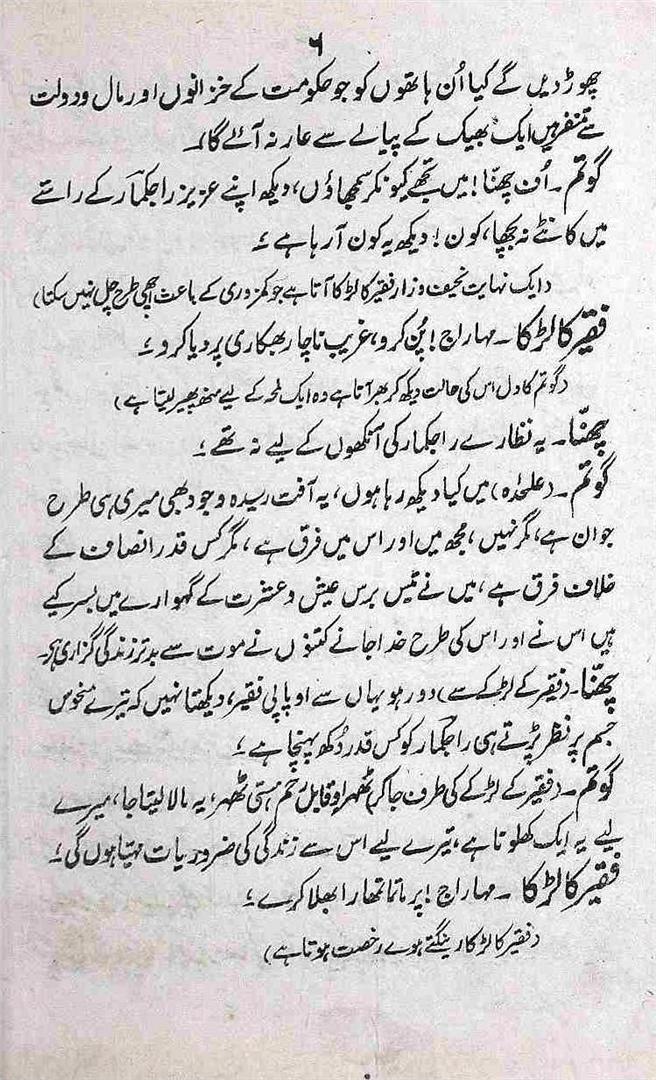 ۶
چھوڑ دیں گے کیا اُن ہاتھوں کو جو حکومت کے خزانوں اور مال و دولت
سے متنفر ہیں ایک بھیک کے پیالے سے عار نہ آئے گا۔
گوتم ۔ اُف چھنّا! میں تجھے کیونکر سمجھاؤں، دیکھ اپنے عزیز راجکمار کے راستے
میں کانٹے نہ بچھا، کون! دیکھ یہ کون آ رہا ہے ؛
(ایک نہایت نحیف و زار فقیر کا لڑکا آتا ہے جو کمزوری کے باعث اچھی طرح چل نہیں سکتا)
فقیر کا لڑکا ۔ مہاراج! پُن کرو، غریب ناچار بھکاری پر دیا کرو ؛
(گوتم کا دل اس کی حالت دیکھ کر بھر آتا ہے وہ ایک لمحہ کے لیے منھ پھیر لیتا ہے)
چھنّا ۔ یہ نظارے راجکمار کی آنکھوں کے لیے نہ تھے ؛
گوتم ۔ (علیحدہ) میں کیا دیکھ رہا ہوں، یہ آفت رسیدہ وجود بھی میری ہی طرح
جوان ہے، مگر نہیں، مجھ میں اور اس میں فرق ہے، مگر کس قدر انصاف کے
خلاف فرق ہے، میں نے تیس برس عیش و عشرت کے گہوارے میں بسر کیے
ہیں اس نے اور اس کی طرح خدا جانے کتنوں نے موت سے بدتر زندگی گزاری ہی۔
چھنّا ۔ (فقیر کے لڑکے سے) دور ہو یہاں سے او پاپی فقیر، دیکھتا نہیں کہ تیرے منحوس
جسم پر نظر پڑتے ہی راجکمار کو کس قدر دُکھ پہنچا ہے ؛
گوتم ۔ (فقیر کے لڑکے کی طرف جا کر) ٹھہر او قابل رحم ہستی ٹھہر، یہ مالا لیتا جا، میرے
لیے یہ ایک کھلونا ہے، تیرے لیے اس سے زندگی کی ضروریات مہیا ہوں گی ؛
فقیر کا لڑکا ۔ مہاراج! پرماتما تمھارا بھلا کرے ؛
(فقیر کا لڑکا رینگتے ہوے رخصت ہوتا ہے)